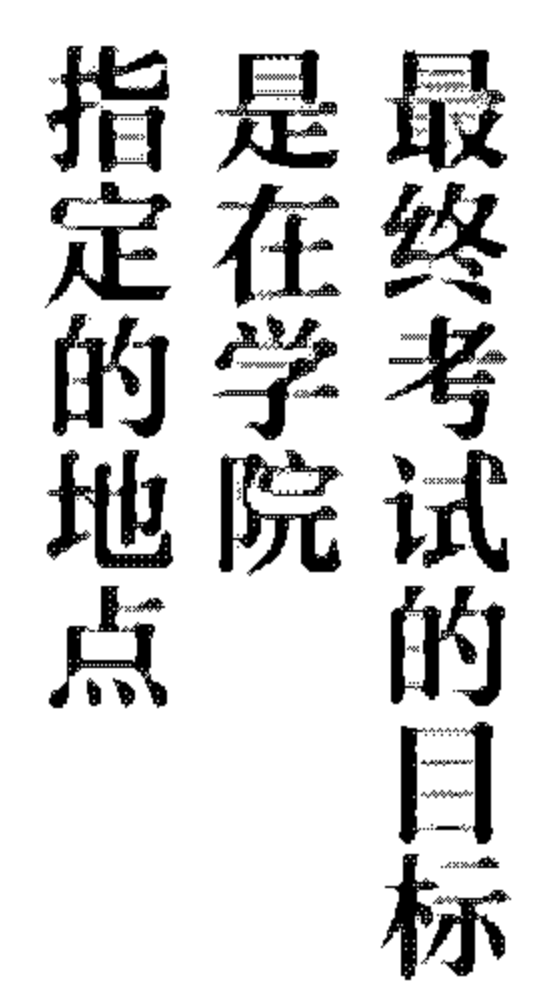 最终考试的目标
是在学院
指定的地点